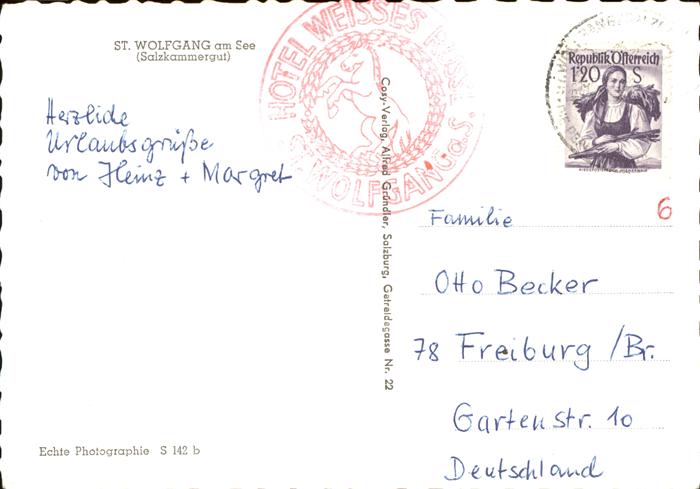 ST. WOLFGANG am See
(Salzkammergut)
Herzliche
Urlaubsgrüße
von Heinz + Margret
Echte Photographie S 142 b
HOTEL WEISSES RÖSSL
ST. WOLFGANG a.S.
Cosy-Verlag, Alfred Gründler, Salzburg, Getreidegasse Nr. 22
Republik Österreich
1·20 S
6
Familie
Otto Becker
78 Freiburg /Br.
Gartenstr. 10
Deutschland